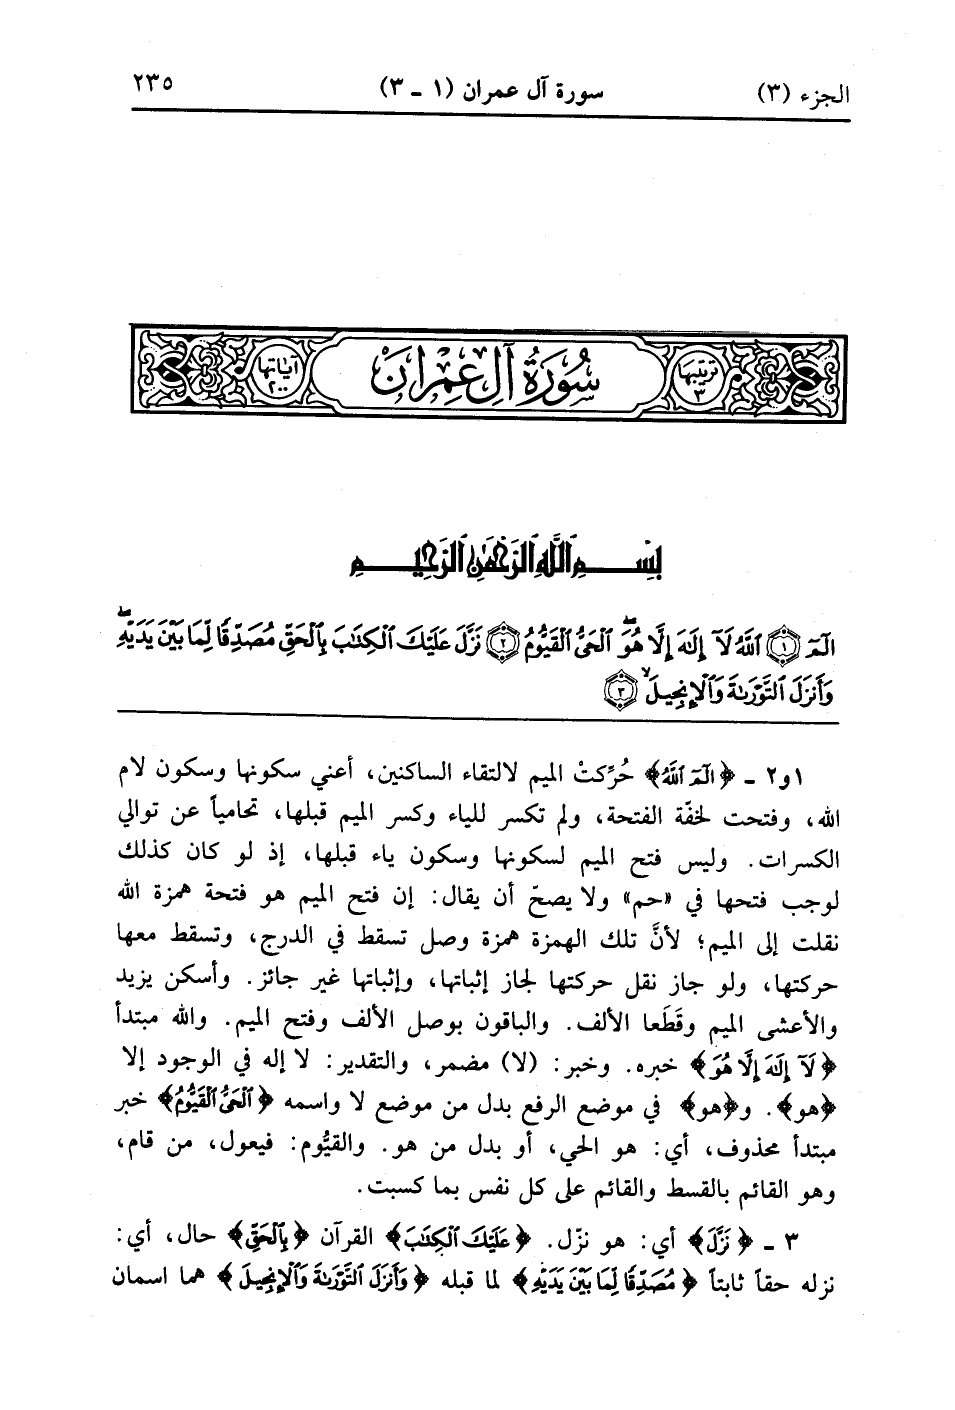 الجزء (٣)
سورة آل عمران (١ - ٣)
٢٣٥
ترتيبها ٣
سُورَةُ آلِ عِمْرَان
آياتها ٢٠٠
بِسْمِ ٱللَّهِ ٱلرَّحْمَٰنِ ٱلرَّحِيمِ
الٓمٓ ١ ٱللَّهُ لَآ إِلَٰهَ إِلَّا هُوَ ٱلْحَىُّ ٱلْقَيُّومُ ٢ نَزَّلَ عَلَيْكَ ٱلْكِتَٰبَ بِٱلْحَقِّ مُصَدِّقًا لِّمَا بَيْنَ يَدَيْهِ
وَأَنزَلَ ٱلتَّوْرَىٰةَ وَٱلْإِنجِيلَ ٣
١و٢ - ﴿الٓمٓ ٱللَّهُ﴾ حُرِّكتْ الميم لالتقاء الساكنين، أعني سكونها وسكون لام
الله، وفتحت لخفّة الفتحة، ولم تكسر للياء وكسر الميم قبلها، تحامياً عن توالي
الكسرات. وليس فتح الميم لسكونها وسكون ياء قبلها، إذ لو كان كذلك
لوجب فتحها في «حم» ولا يصحّ أن يقال: إن فتح الميم هو فتحة همزة الله
نقلت إلى الميم؛ لأنَّ تلك الهمزة همزة وصل تسقط في الدرج، وتسقط معها
حركتها، ولو جاز نقل حركتها لجاز إثباتها، وإثباتها غير جائز. وأسكن يزيد
والأعشى الميم وقَطَعا الألف. والباقون بوصل الألف وفتح الميم. والله مبتدأ
﴿لَآ إِلَٰهَ إِلَّا هُوَ﴾ خبره. وخبر: (لا) مضمر، والتقدير: لا إله في الوجود إلا
﴿هو﴾. و﴿هو﴾ في موضع الرفع بدل من موضع لا واسمه ﴿ٱلْحَىُّ ٱلْقَيُّومُ﴾ خبر
مبتدأ محذوف، أي: هو الحي، أو بدل من هو. والقيُّوم: فيعول، من قام،
وهو القائم بالقسط والقائم على كل نفس بما كسبت.
٣ - ﴿نَزَّلَ﴾ أي: هو نزّل. ﴿عَلَيْكَ ٱلْكِتَٰبَ﴾ القرآن ﴿بِٱلْحَقِّ﴾ حال، أي:
نزله حقاً ثابتاً ﴿مُصَدِّقًا لِّمَا بَيْنَ يَدَيْهِ﴾ لما قبله ﴿وَأَنزَلَ ٱلتَّوْرَىٰةَ وَٱلْإِنجِيلَ﴾ هما اسمان